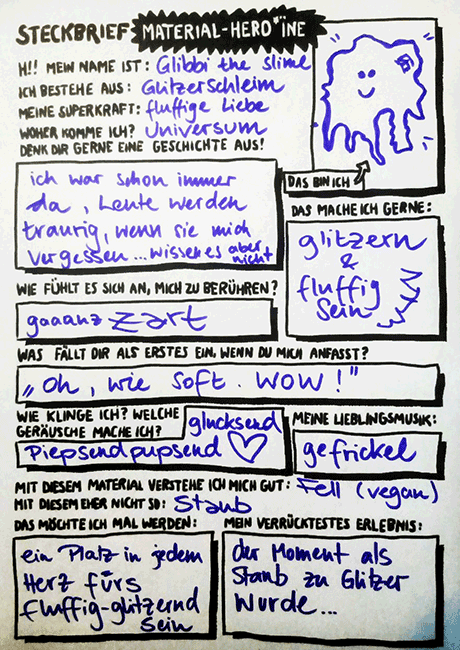 STECKBRIEF: MATERIAL-HERO*INE
H!! MEIN NAME IST: Glibbi the slime
ICH BESTEHE AUS: Glitzerschleim
MEINE SUPERKRAFT: fluffige Liebe
WOHER KOMME ICH? Universum
DENK DIR GERNE EINE GESCHICHTE AUS!
ich war schon immer
da, Leute werden
traurig, wenn sie mich
vergessen... wissen es aber
nicht
DAS BIN ICH
DAS MACHE ICH GERNE:
glitzern
&
fluffig
sein
WIE FÜHLT ES SICH AN, MICH ZU BERÜHREN?
gaaanz zart
WAS FÄLLT DIR ALS ERSTES EIN, WENN DU MICH ANFASST?
„Oh, wie soft. WOW!"
WIE KLINGE ICH? WELCHE
GERÄUSCHE MACHE ICH?
glucksend
Piepsendpupsend
MEINE LIEBLINGSMUSIK:
gefrickel
MIT DIESEM MATERIAL VERSTEHE ICH MICH GUT: Fell (vegan)
MIT DIESEM EHER NICHT SO: Staub
DAS MÖCHTE ICH MAL WERDEN:
ein Platz in jedem
Herz fürs
fluffig-glitzernd
sein
MEIN VERRÜCKTESTES ERLEBNIS:
der Moment als
Staub zu Glitzer
wurde...